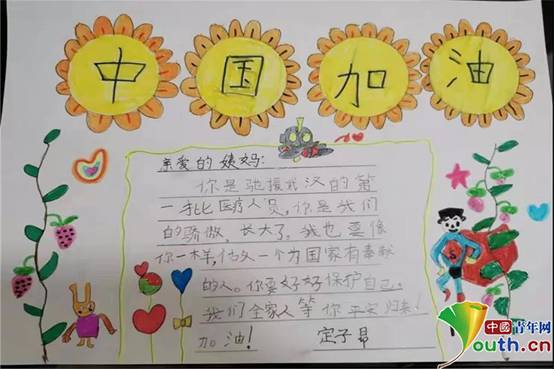 中国加油
亲爱的姨妈:
你是驰援武汉的第
一批医疗人员,你是我们
的骄傲,长大了,我也要像
你一样,做一个为国家有奉献
的人。你要好好保护自己。
我们全家人等你平安归来!
加油! 定子昂
中國青年网
Youth.cn